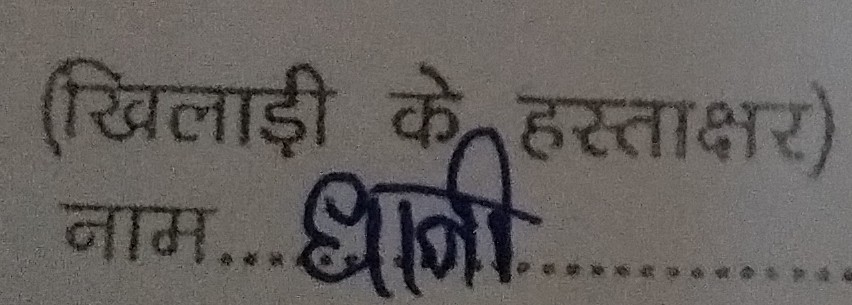 (खिलाड़ी के हस्ताक्षर)
नाम....धानी..............